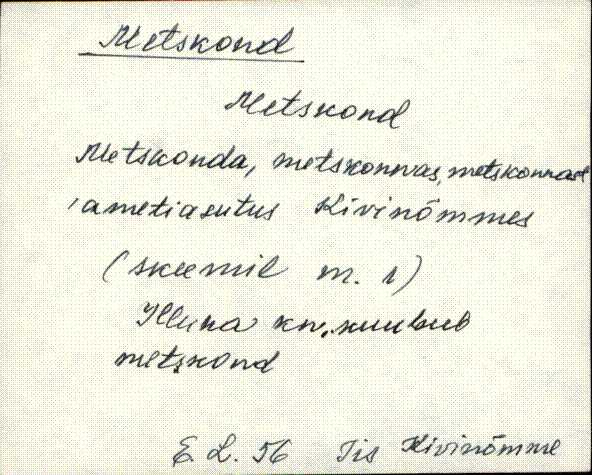 Metskond
Metskond
Metskonda, metskonnas, metskonnast
, ametiasutus Kivinõmmes
(skeemil m. 1)
Illuka kn. kuulub
metskond
E. L. 56 Iis Kivinõmme